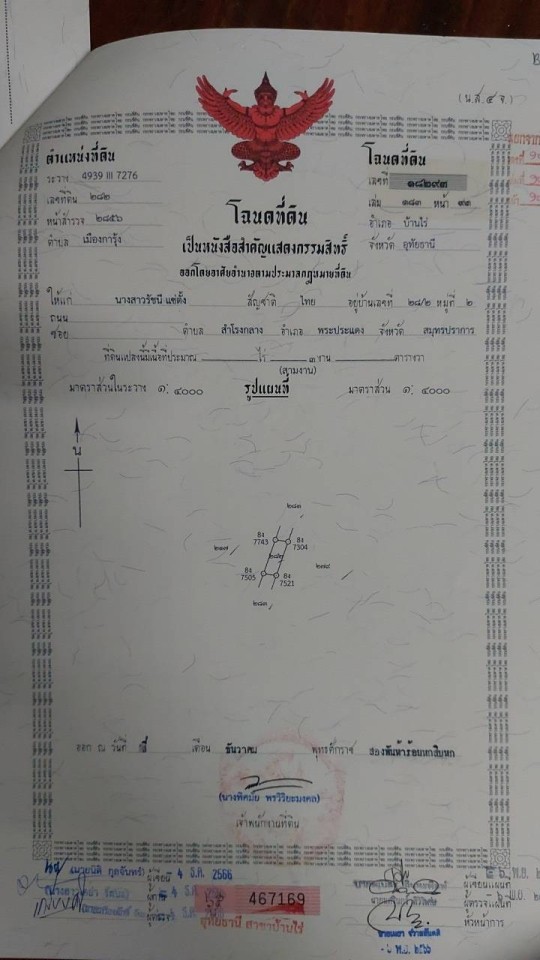 (น.ส.๔ จ.)
ตำแหน่งที่ดิน
ระวาง 4939 III 7276
เลขที่ดิน ๒๘๒
หน้าสำรวจ ๒๘๕๖
ตำบล เมืองการุ้ง
โฉนดที่ดิน
เลขที่ ๑๘๒๙๓
เล่ม ๑๘๓ หน้า ๙๓
อำเภอ บ้านไร่
จังหวัด อุทัยธานี
โฉนดที่ดิน
เป็นหนังสือสำคัญแสดงกรรมสิทธิ์
ออกโดยอาศัยอำนาจตามประมวลกฎหมายที่ดิน
ให้แก่ นางสาวรัชนี แซ่ตั้ง สัญชาติ ไทย อยู่บ้านเลขที่ ๒๘/๒ หมู่ที่ ๒
ถนน
ซอย ตำบล สำโรงกลาง อำเภอ พระประแดง จังหวัด สมุทรปราการ
ที่ดินแปลงนี้มีเนื้อที่ประมาณ ไร่ ๓ งาน ตารางวา
(สามงาน)
มาตราส่วนในระวาง ๑: ๔๐๐๐ รูปแผนที่ มาตราส่วน ๑: ๔๐๐๐
น
๒๘๓
8ง 7743
8ง 7304
๒๘๒
8ง 7505
8ง 7521
๒๘๓
ออก ณ วันที่ สี่ เดือน ธันวาคม พุทธศักราช สองพันห้าร้อยหกสิบหก
(นางพิศมัย พรวิริยะมงคล)
เจ้าพนักงานที่ดิน
4 ธ.ค. 2566
467169
อุทัยธานี สาขาบ้านไร่
ผู้เขียนแผนที่
ผู้ตรวจแผนที่
หัวหน้าการ